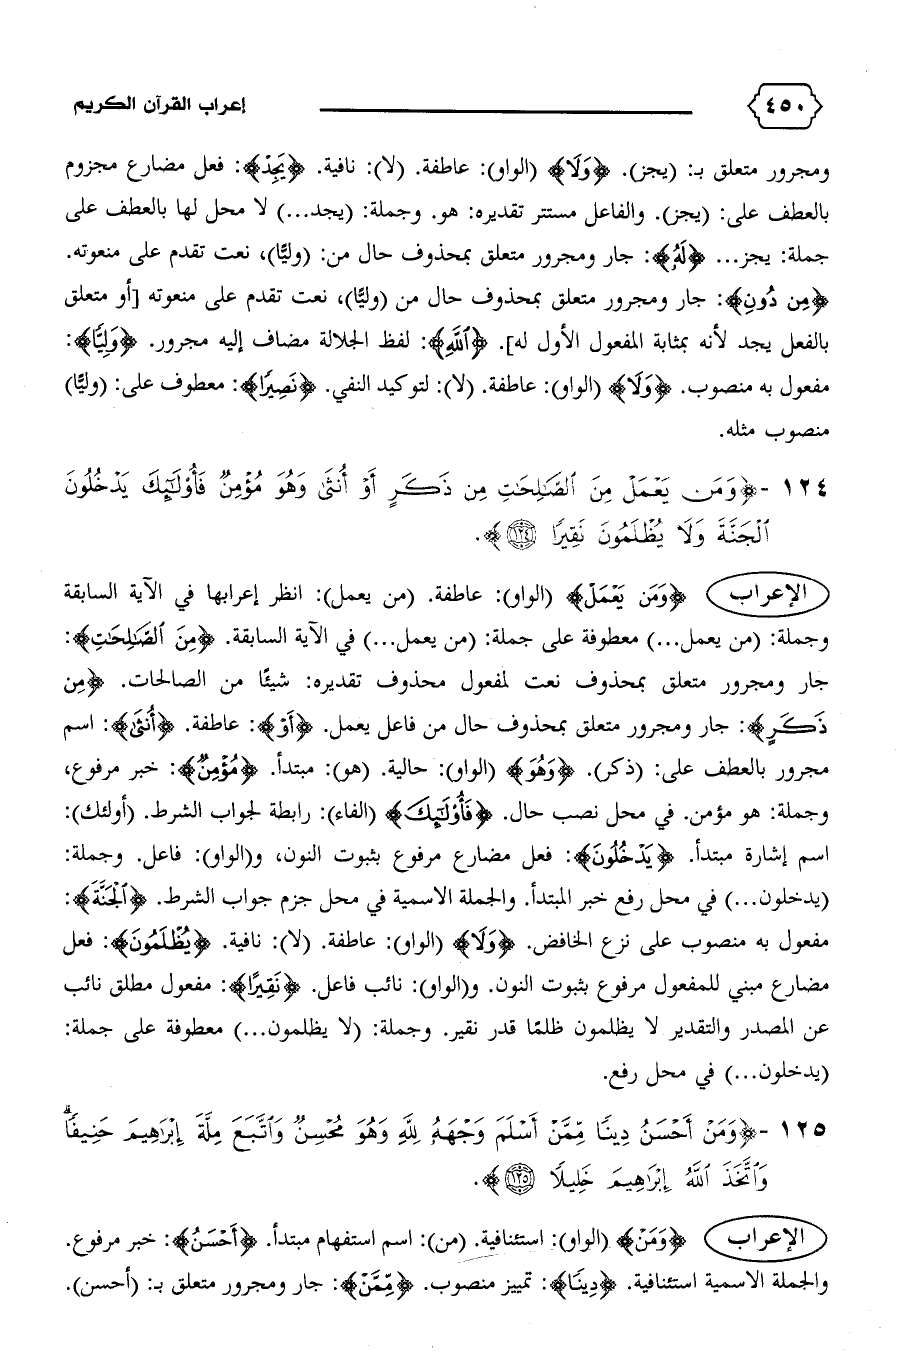 ٤٥٠ إعراب القرآن الكريم
ومجرور متعلق بـ: (يجز). ﴿وَلَا﴾ (الواو): عاطفة. (لا): نافية. ﴿يَجِدْ﴾: فعل مضارع مجزوم
بالعطف على: (يجز). والفاعل مستتر تقديره: هو. وجملة: (يجد...) لا محل لها بالعطف على
جملة: يجز... ﴿لَهُۥ﴾: جار ومجرور متعلق بمحذوف حال من: (وليًّا)، نعت تقدم على منعوته.
﴿مِن دُونِ﴾: جار ومجرور متعلق بمحذوف حال من (وليًّا)، نعت تقدم على منعوته [أو متعلق
بالفعل يجد لأنه بمثابة المفعول الأول له]. ﴿ٱللَّهِ﴾: لفظ الجلالة مضاف إليه مجرور. ﴿وَلِيًّا﴾:
مفعول به منصوب. ﴿وَلَا﴾ (الواو): عاطفة. (لا): لتوكيد النفي. ﴿نَصِيرًا﴾: معطوف على: (وليًّا)
منصوب مثله.
١٢٤ -﴿وَمَن يَعْمَلْ مِنَ ٱلصَّٰلِحَٰتِ مِن ذَكَرٍ أَوْ أُنثَىٰ وَهُوَ مُؤْمِنٌ فَأُو۟لَٰٓئِكَ يَدْخُلُونَ
ٱلْجَنَّةَ وَلَا يُظْلَمُونَ نَقِيرًا ١٢٤﴾.
الإعراب ﴿وَمَن يَعْمَلْ﴾ (الواو): عاطفة. (من يعمل): انظر إعرابها في الآية السابقة
وجملة: (من يعمل...) معطوفة على جملة: (من يعمل...) في الآية السابقة. ﴿مِنَ ٱلصَّٰلِحَٰتِ﴾:
جار ومجرور متعلق بمحذوف نعت لمفعول محذوف تقديره: شيئًا من الصالحات. ﴿مِن
ذَكَرٍ﴾: جار ومجرور متعلق بمحذوف حال من فاعل يعمل. ﴿أَوْ﴾: عاطفة. ﴿أُنثَىٰ﴾: اسم
مجرور بالعطف على: (ذكر). ﴿وَهُوَ﴾ (الواو): حالية. (هو): مبتدأ. ﴿مُؤْمِنٌ﴾: خبر مرفوع،
وجملة: هو مؤمن. في محل نصب حال. ﴿فَأُو۟لَٰٓئِكَ﴾ (الفاء): رابطة لجواب الشرط. (أولئك):
اسم إشارة مبتدأ. ﴿يَدْخُلُونَ﴾: فعل مضارع مرفوع بثبوت النون، و(الواو): فاعل. وجملة:
(يدخلون...) في محل رفع خبر المبتدأ. والجملة الاسمية في محل جزم جواب الشرط. ﴿ٱلْجَنَّةَ﴾:
مفعول به منصوب على نزع الخافض. ﴿وَلَا﴾ (الواو): عاطفة. (لا): نافية. ﴿يُظْلَمُونَ﴾: فعل
مضارع مبني للمفعول مرفوع بثبوت النون. و(الواو): نائب فاعل. ﴿نَقِيرًا﴾: مفعول مطلق نائب
عن المصدر والتقدير لا يظلمون ظلمًا قدر نقير. وجملة: (لا يظلمون...) معطوفة على جملة:
(يدخلون...) في محل رفع.
١٢٥ -﴿وَمَنْ أَحْسَنُ دِينًا مِّمَّنْ أَسْلَمَ وَجْهَهُۥ لِلَّهِ وَهُوَ مُحْسِنٌ وَٱتَّبَعَ مِلَّةَ إِبْرَٰهِيمَ حَنِيفًا ۗ
وَٱتَّخَذَ ٱللَّهُ إِبْرَٰهِيمَ خَلِيلًا ١٢٥﴾.
الإعراب ﴿وَمَنْ﴾ (الواو): استئنافية. (من): اسم استفهام مبتدأ. ﴿أَحْسَنُ﴾: خبر مرفوع.
والجملة الاسمية استئنافية. ﴿دِينًا﴾: تمييز منصوب. ﴿مِّمَّنْ﴾: جار ومجرور متعلق بـ: (أحسن).